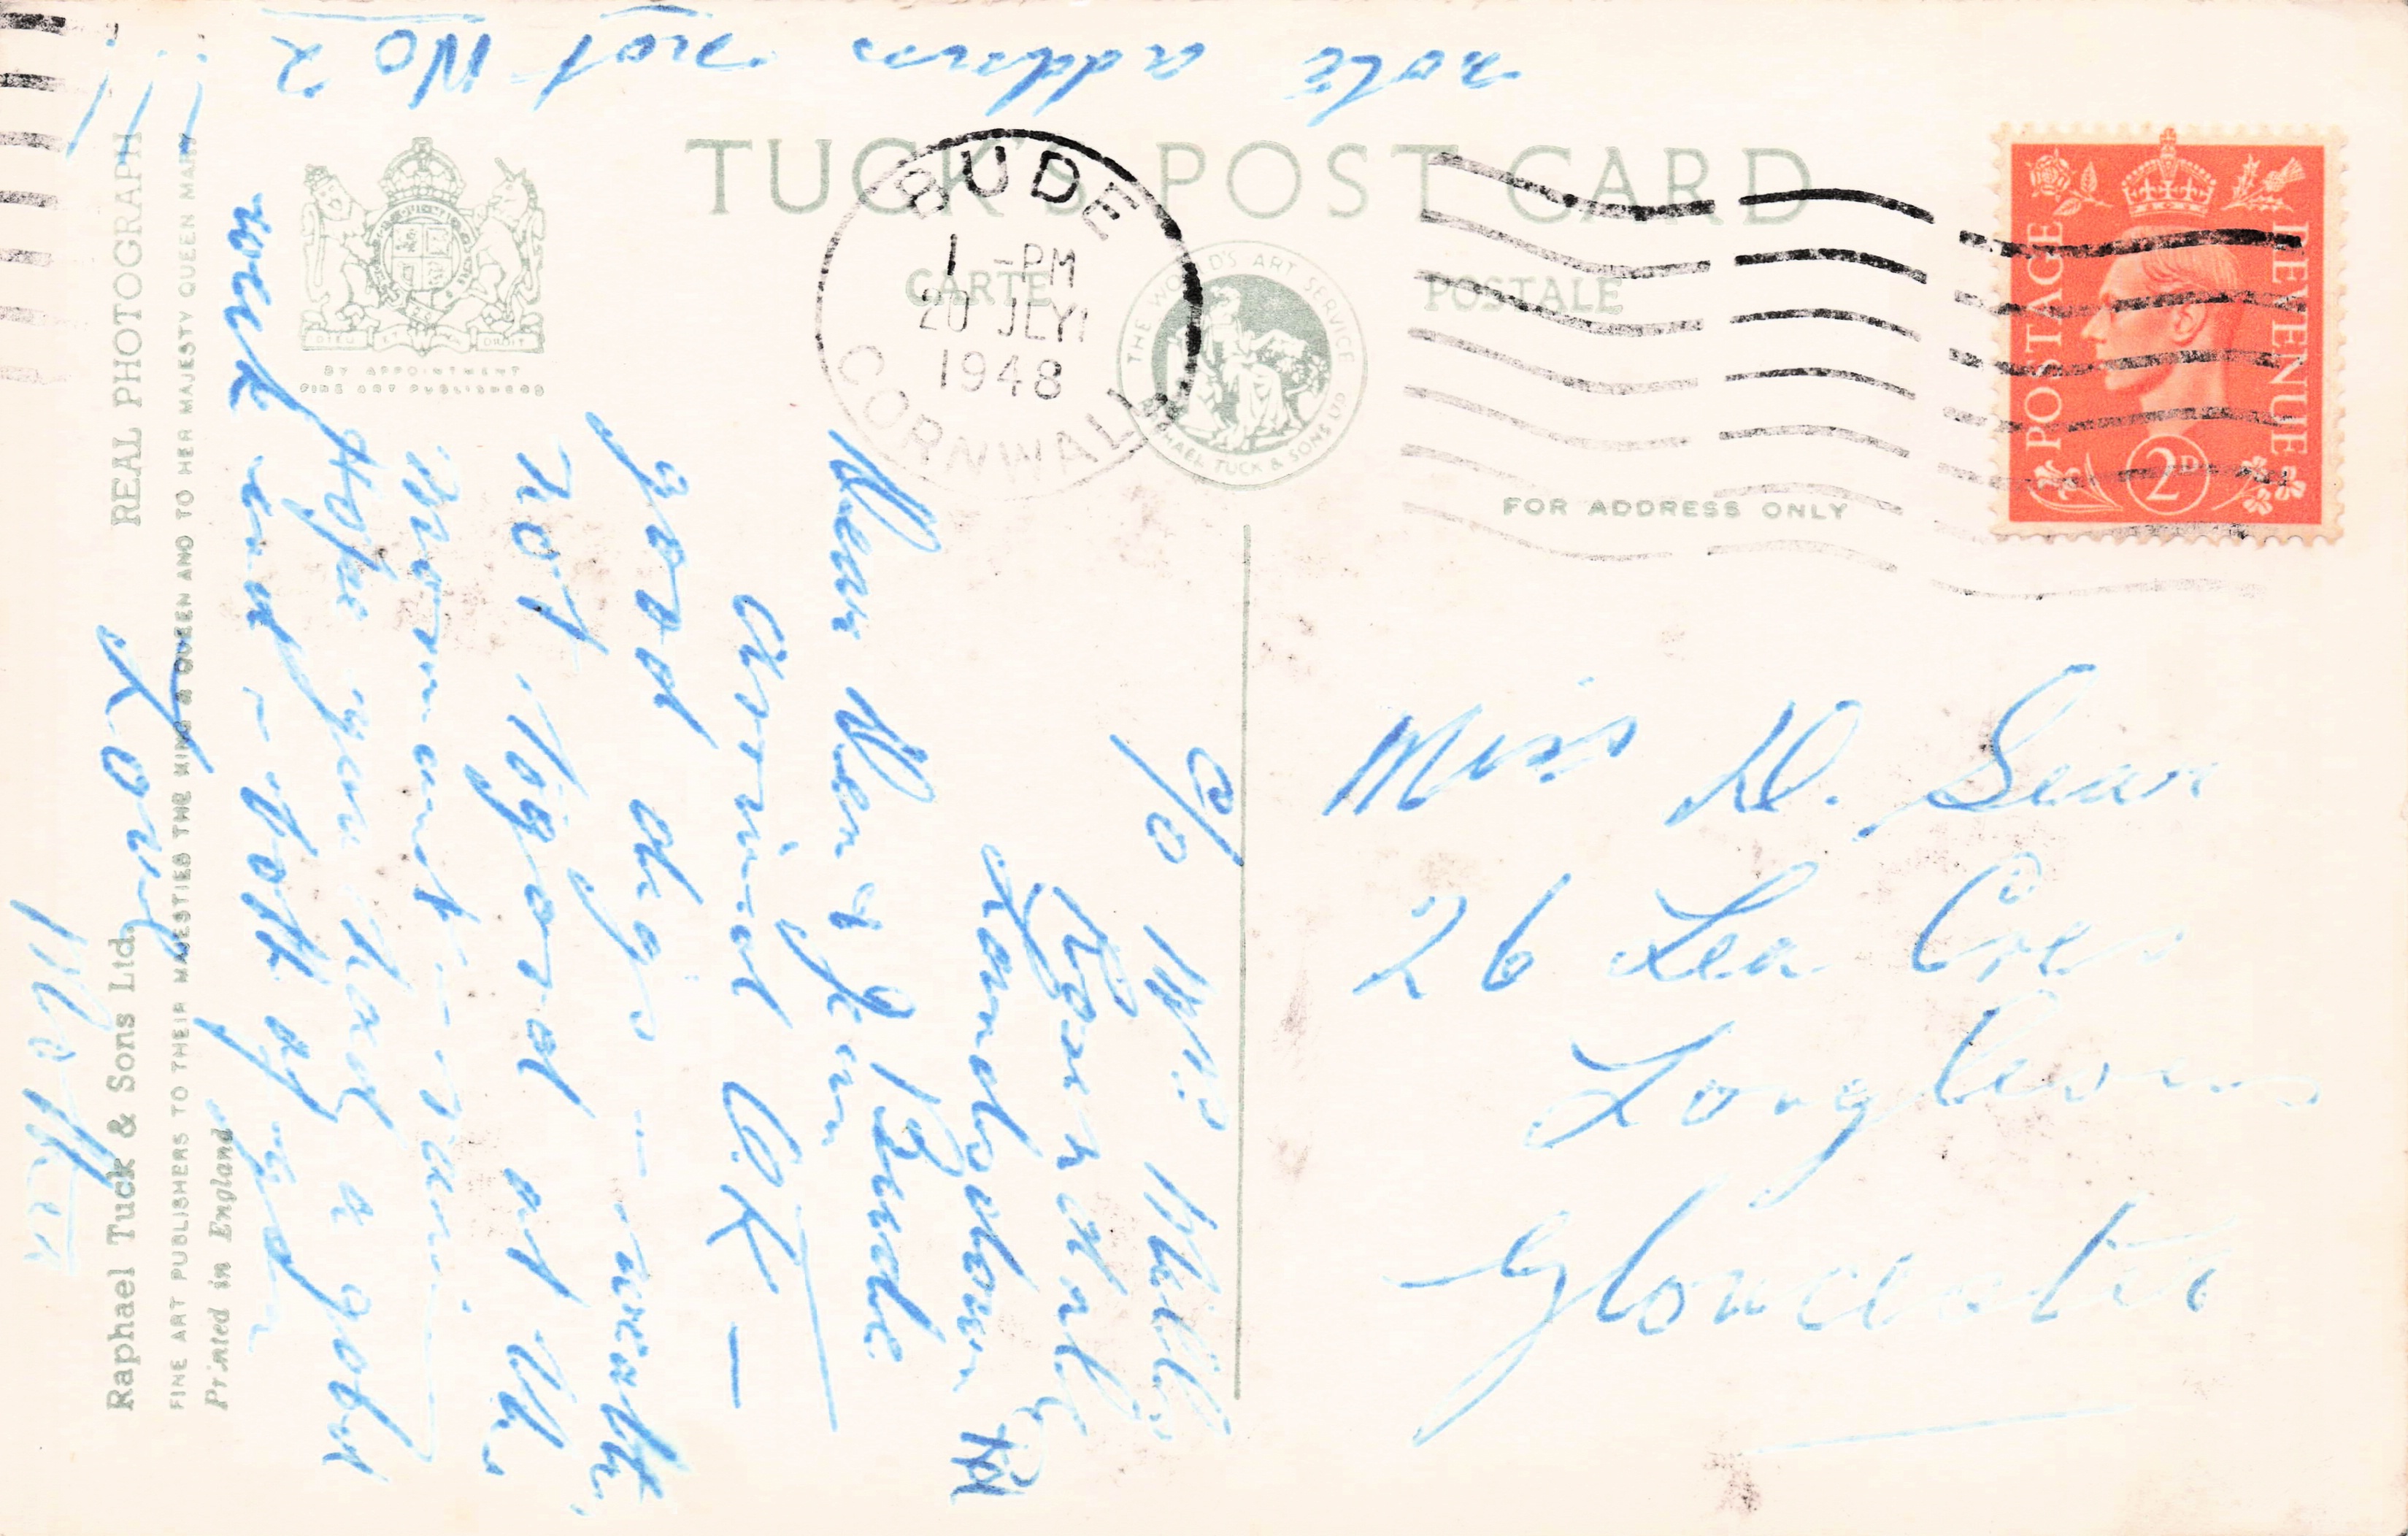 note address not No 2
TUCK'S POST CARD
CARTE POSTALE
BY APPOINTMENT
FINE ART PUBLISHERS
THE WORLD'S ART SERVICE
RAPHAEL TUCK & SONS LTD
BUDE
1 - PM
20 JLY
1948
CORNWALL
POSTAGE
REVENUE
2D
FOR ADDRESS ONLY
Miss D. Sear
26 Lea Cres
Longlevens
Gloucester
c/o Mrs Mills
Rosndale
Lansdown Rd
Bude
Dear Den & Jean
Arrived O.K -
good digs - weather
not too good at the
moment - rain
Hope you had a good
week end - both of you
Love
REAL PHOTOGRAPH
Raphael Tuck & Sons Ltd.
FINE ART PUBLISHERS TO THEIR MAJESTIES THE KING & QUEEN AND TO HER MAJESTY QUEEN MARY
Printed in England